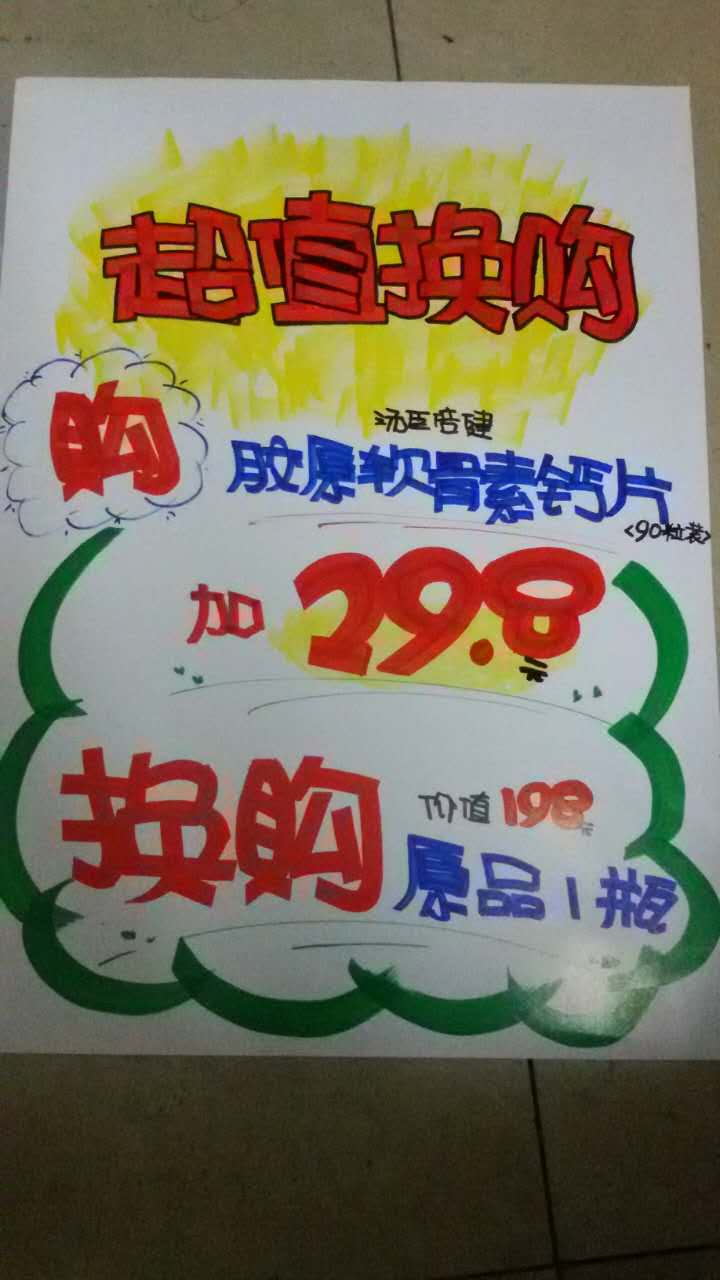 超值换购
购
汤臣倍健
胶原软骨素钙片
<90粒装>
加 29.8元
换购 价值198元
原品1瓶